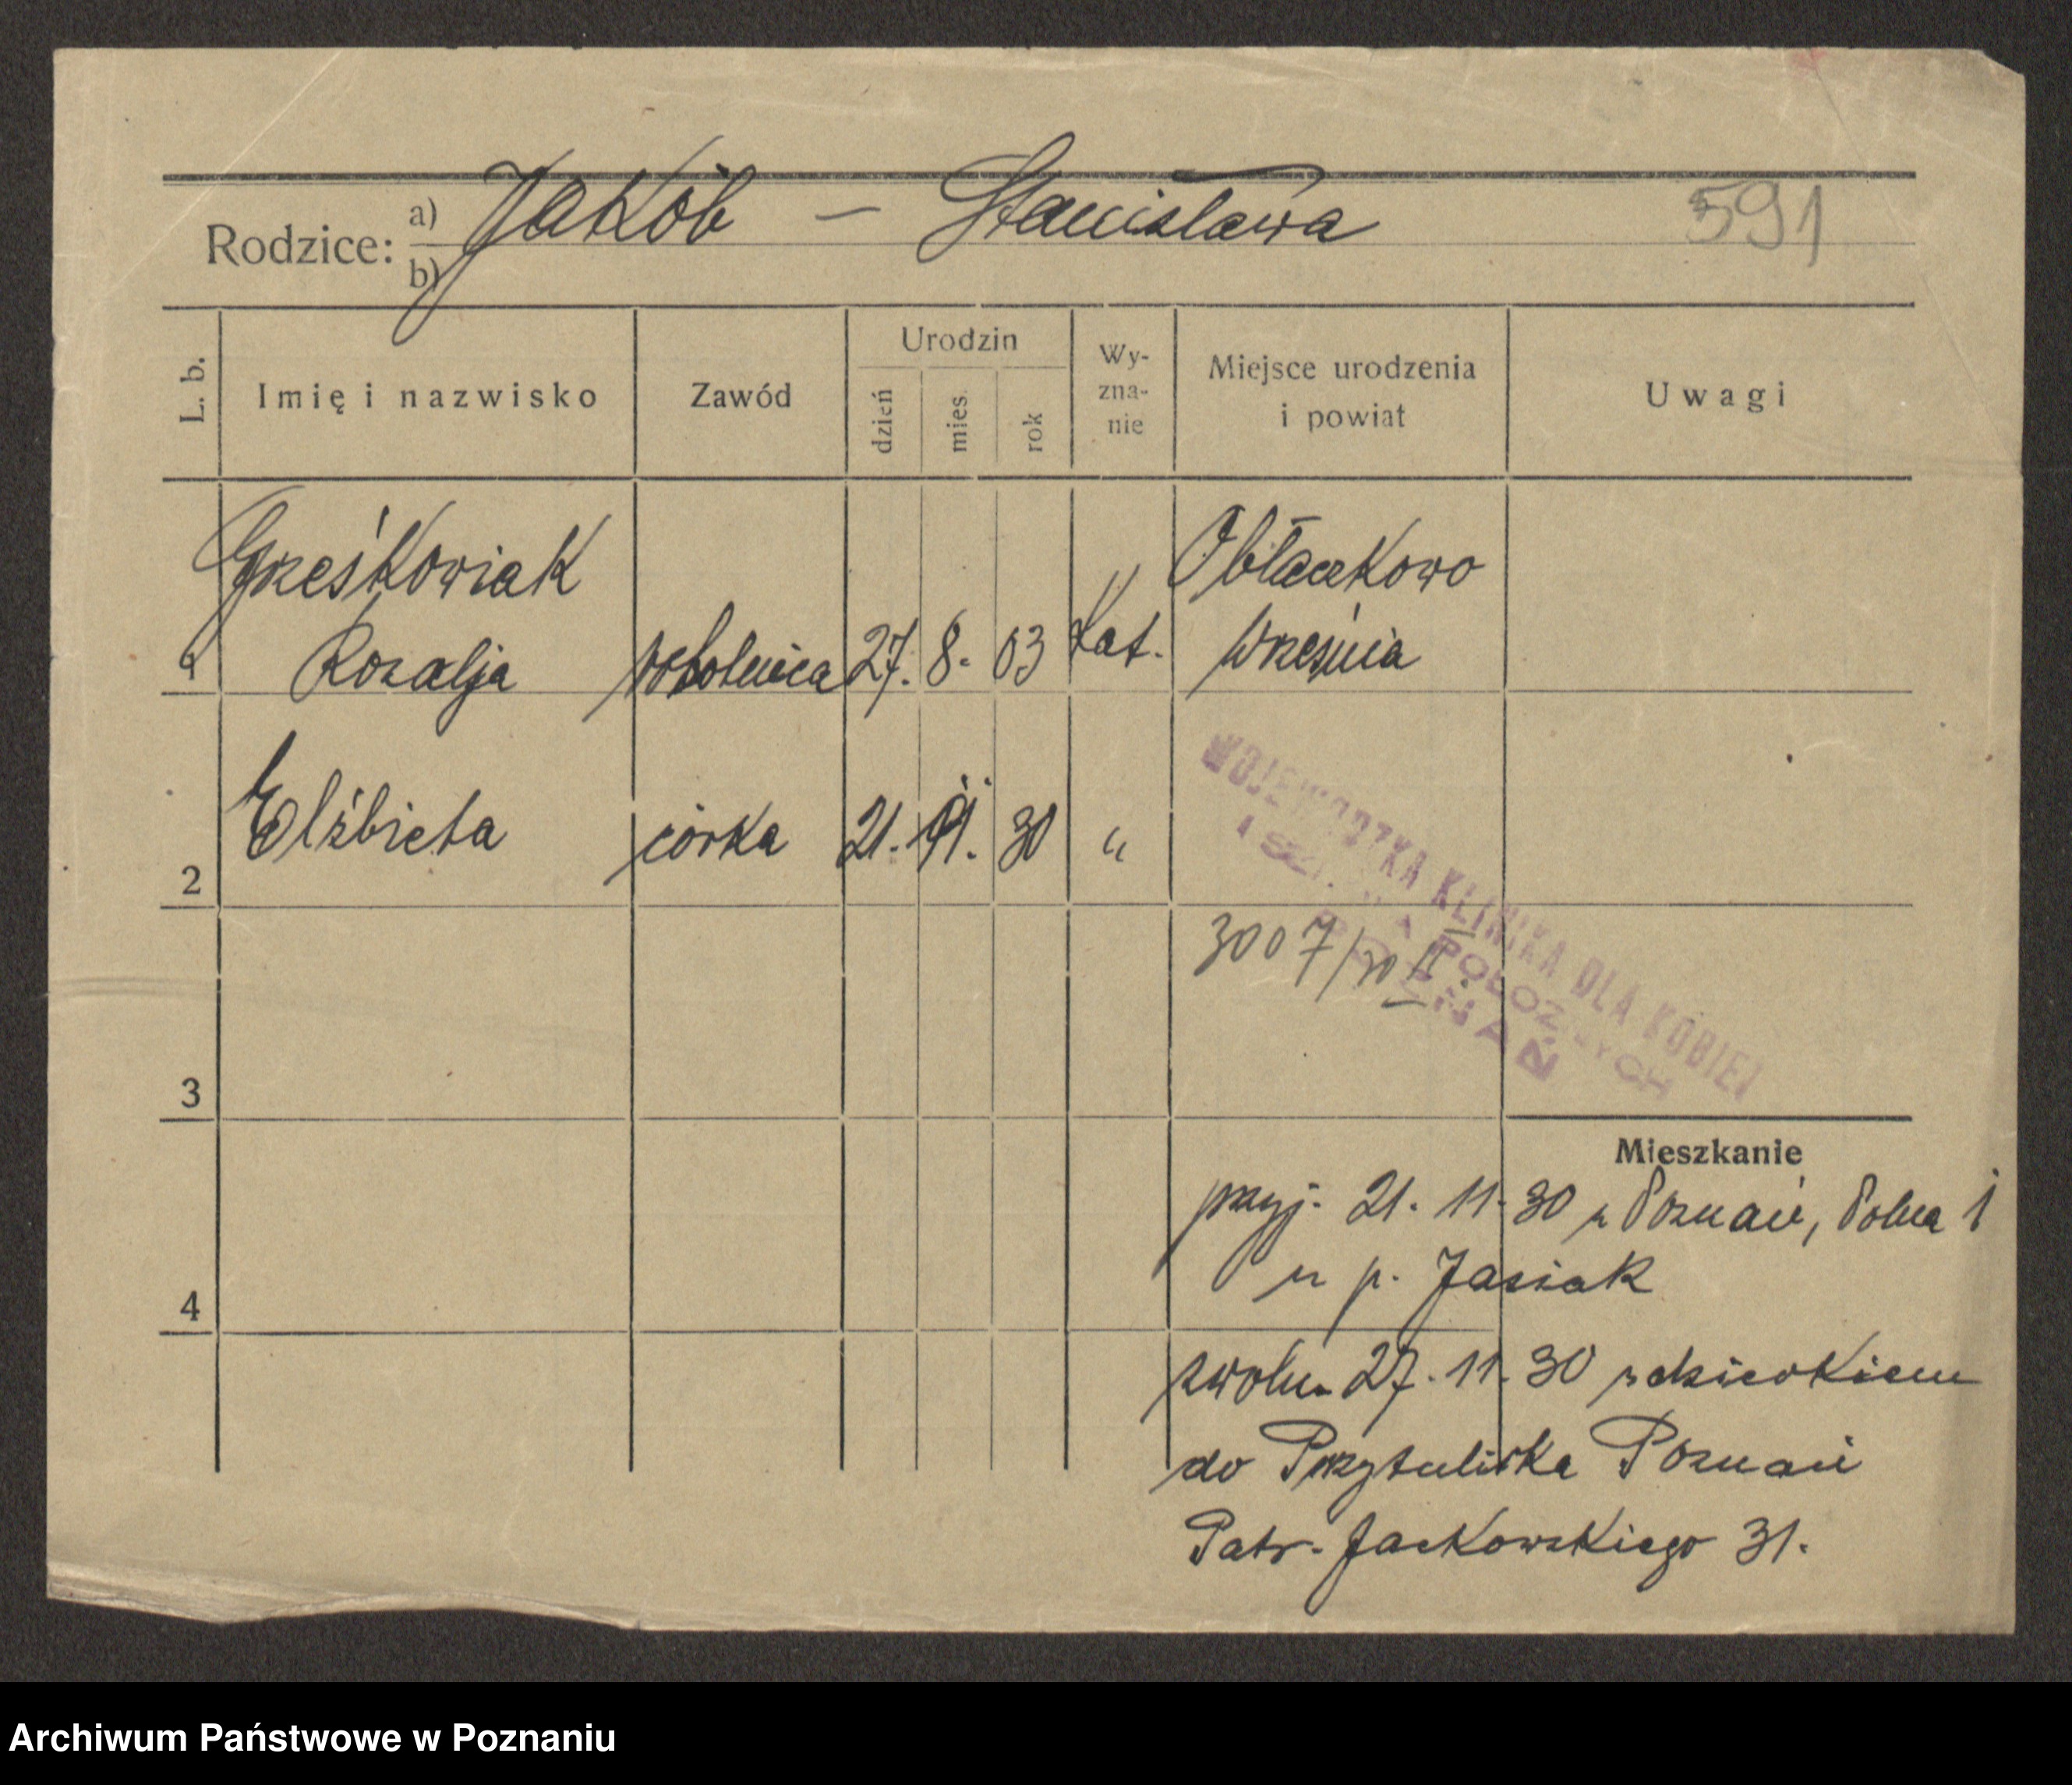 Rodzice: a) Jakób — Stanisława 591
b)
L. b. Imię i nazwisko Zawód Urodzin dzień mies. rok Wy-zna-nie Miejsce urodzenia i powiat Uwagi
Grześkowiak Obłaczkowo
1 Rozalja robotnica 27. 8. 03 kat. Września
2 Elżbieta córka 21. 11. 30 "
WOJEWÓDZKA KLINIKA DLA KOBIET
POŁOŻNYCH
POZNAŃ
3007/30 II
3
Mieszkanie
przyj. 21. 11. 30 z Poznań, Polna 1
4 u p. Jasiak
zwoln. 27. 11. 30 z dzieckiem
do Przytuliska Poznań
Patr. Jackowskiego 31.
Archiwum Państwowe w Poznaniu